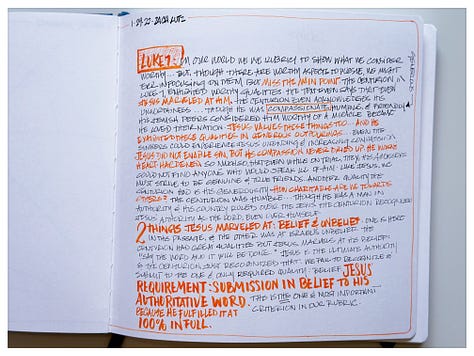 LUKE 7: IN OUR WORLD WE USE RUBRICS TO SHOW WHAT WE CONSIDER
WORTHY... BUT, THOUGH THERE ARE WORTHY ASPECTS TO PURSUE, WE MIGHT
BE FOCUSING ON THEM, BUT MISS THE MAIN POINT. THE CENTURION IN
LUKE 7 EXHIBITED WORTHY QUALITIES THE TEXT EVEN SAYS THAT EVEN
JESUS MARVELED AT HIM. THE CENTURION EVEN ACKNOWLEDGES HIS
UNWORTHINESS... THOUGH HE WAS COMPASSIONATE, HUMBLE, &
HIS JEWISH PEERS CONSIDERED HIM WORTHY OF A MIRACLE BECAUSE
HE LOVED THEIR NATION. JESUS VALUES THESE THINGS TOO... AND HE
EXHIBITED THESE QUALITIES IN GENEROUS OUTPOURINGS... EVEN THE
SINNERS COULD EXPERIENCE JESUS' UNENDING & INCREASING COMPASSION
JESUS DID NOT ENABLE SIN, BUT HIS COMPASSION NEVER DRIED UP. HE WASN'T
HEART-HARDENED. SO MUCH SO, THAT EVEN WHILE ON TRIAL, THEY
COULD NOT FIND ANYONE WHO WOULD SPEAK ILL OF HIM. LIKE JESUS, WE
MUST STRIVE TO BE GENUINE & TRUE FRIENDS. ANOTHER QUALITY OF THE
CENTURION IS HIS GENEROSITY. HOW CHARITABLE ARE WE TOWARDS
OTHERS? THE CENTURION WAS HUMBLE... THOUGH HE IS A MAN IN
AUTHORITY & HIS COUNTRY RULED OVER THE JEWS, THE CENTURION RECOGNIZED
JESUS' AUTHORITY AS THE LORD, EVEN OVER HIMSELF.
2 THINGS JESUS MARVELED AT: BELIEF & UNBELIEF. ONE IS HERE
IN THIS PASSAGE, & THE OTHER WAS AT ISRAEL'S UNBELIEF. THE
CENTURION HAD GREAT QUALITIES BUT JESUS MARVELS AT HIS BELIEF.
"SAY THE WORD AND IT WILL BE DONE." JESUS IS THE ULTIMATE AUTHORITY
& THE CENTURION JUST RECOGNIZED THAT. WE FAIL TO RECOGNIZE &
SUBMIT TO THE ONE & ONLY REQUIRED QUALITY: BELIEF. JESUS
REQUIREMENT: SUBMISSION IN BELIEF TO HIS
AUTHORITATIVE WORD. THIS IS THE ONE & MOST IMPORTANT
BECAUSE HE FULFILLED IT AT CRITERION IN OUR RUBRIC.
100% IN FULL.